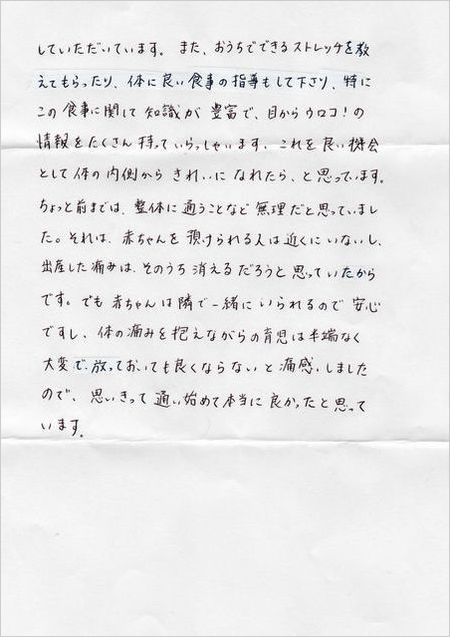 していただいています。また、おうちでできるストレッチを教
えてもらったり、体に良い食事の指導もして下さり、特に
この食事に関して知識が豊富で、目からウロコ!の
情報をたくさん持っていらっしゃいます、これを良い機会
として体の内側からきれいになれたら、と思っています。
ちょっと前までは、整体に通うことなど無理だと思っていまし
た。それは、赤ちゃんを預けられる人は近くにいないし、
出産した痛みは、そのうち消えるだろうと思っていたから
です。でも赤ちゃんは隣で一緒にいられるので安心
ですし、体の痛みを抱えながらの育児は半端なく
大変で、放っておいても良くならないと痛感しました
ので、思いきって通い始めて本当に良かったと思って
います。